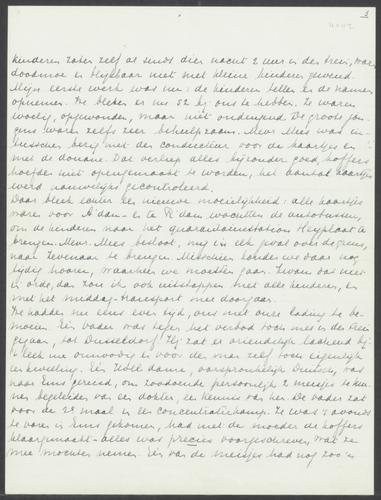 3
kinderen zaten zelf al sinds dien nacht 2 uur in den trein, waren
doodmoe en blijkbaar niet met kleine kinderen gewend.
Mijn eerste werk was nu: de kinderen tellen en de namen
opnemen. Er bleken er nu 52 bij ons te hebben. Ze waren
woelig, opgewonden, maar niet ondeugend. De groote jon-
gens waren zelfs zeer behulpzaam. Mevr. Mees was in-
tusschen bezig met den conducteur voor de kaartjes en
met de douane. Dat verliep alles bijzonder goed, koffers
hoefden niet opengemaakt te worden, het aantal kaartjes
werd nauwelijks gecontroleerd.
Daar bleek echter een nieuwe moeilijkheid: alle kaartjes
waren voor A'dam - en te R'dam wachtten de autobussen,
om de kinderen naar het quarantainestation Heyplaat te
brengen. Mevr. Mees besloot, mij in elk geval over de grens,
naar Zevenaar te brengen. Misschien konden we daar nog
tijdig hooren, waarheen we moesten gaan. Kwam dat niet
in orde, dan zou ik ook uitstappen met alle kinderen, en
met het middag-transport mee doorgaan.
We hadden nu eens even tijd, ons met onze lading te be-
moeien. Een vader was tegen het verbod toch mee in den trein
gegaan, tot Dusseldorf. Hij zat er vriendelijk lachend bij
leek me onnoodig en voor den man zelf toen eigenlijk
een kwelling. Een Zweedsche dame, oorspronkelijk Duitsch, was
naar Ems gereisd, om zoodoende persoonlijk 2 meisjes te kun-
nen begeleiden van een dokter, een kennis van haar. De vader zat
voor de 2e maal in een concentratiekamp. Ze was 's avonds
te voren in Ems gekomen, had met de moeder de koffers
klaargemaakt - alles was precies voorgeschreven, wat ze
mee mochten nemen. Een van de meisjes had nog zoo'n